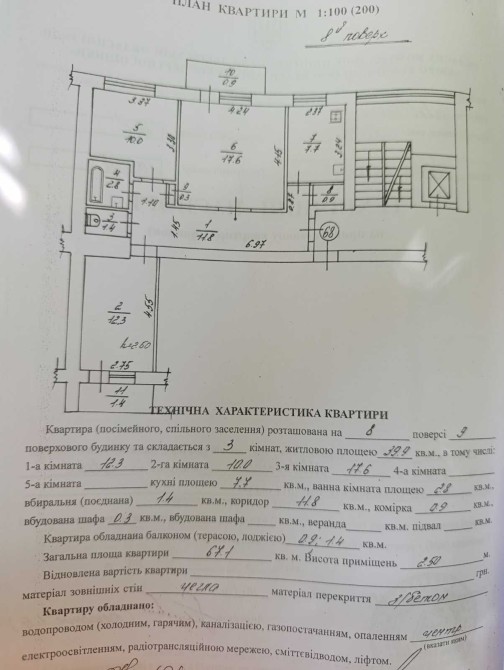 ПЛАН КВАРТИРИ М 1:100 (200)
8й поверх
10
0.9
3.87
4.24
2.37
5
10.0
3.30
6
17.6
4.15
7
7.7
3.24
4
2.8
1.10
9
0.3
8
0.9
3
1.4
1.45
1
11.8
6.97
68
2
12.3
4.55
h=2.50
2.75
11
1.4
ТЕХНІЧНА ХАРАКТЕРИСТИКА КВАРТИРИ
Квартира (посімейного, спільного заселення) розташована на 8 поверсі 9
поверхового будинку та складається з 3 кімнат, житловою площею 39.9 кв.м., в тому числі:
1-а кімната 12.3 2-га кімната 10.0 3-я кімната 17.6 4-а кімната
5-а кімната кухні площею 7.7 кв.м., ванна кімната площею 2.8 кв.м.,
вбиральня (поєднана) 1.4 кв.м., коридор 11.8 кв.м., комірка 0.9 кв.м.,
вбудована шафа 0.3 кв.м., вбудована шафа кв.м., веранда кв.м. підвал кв.м.
Квартира обладнана балконом (терасою, лоджією) 0.9; 1.4 кв.м.
Загальна площа квартири 67.1 кв. м. Висота приміщень 2.50 м.
Відновлена вартість квартири грн.
матеріал зовнішніх стін цегла матеріал перекриття з/бетон
Квартиру обладнано:
водопроводом (холодним, гарячим), каналізацією, газопостачанням, опаленням центр
(вказати яким)
електроосвітленням, радіотрансляційною мережею, сміттєвідводом, ліфтом.